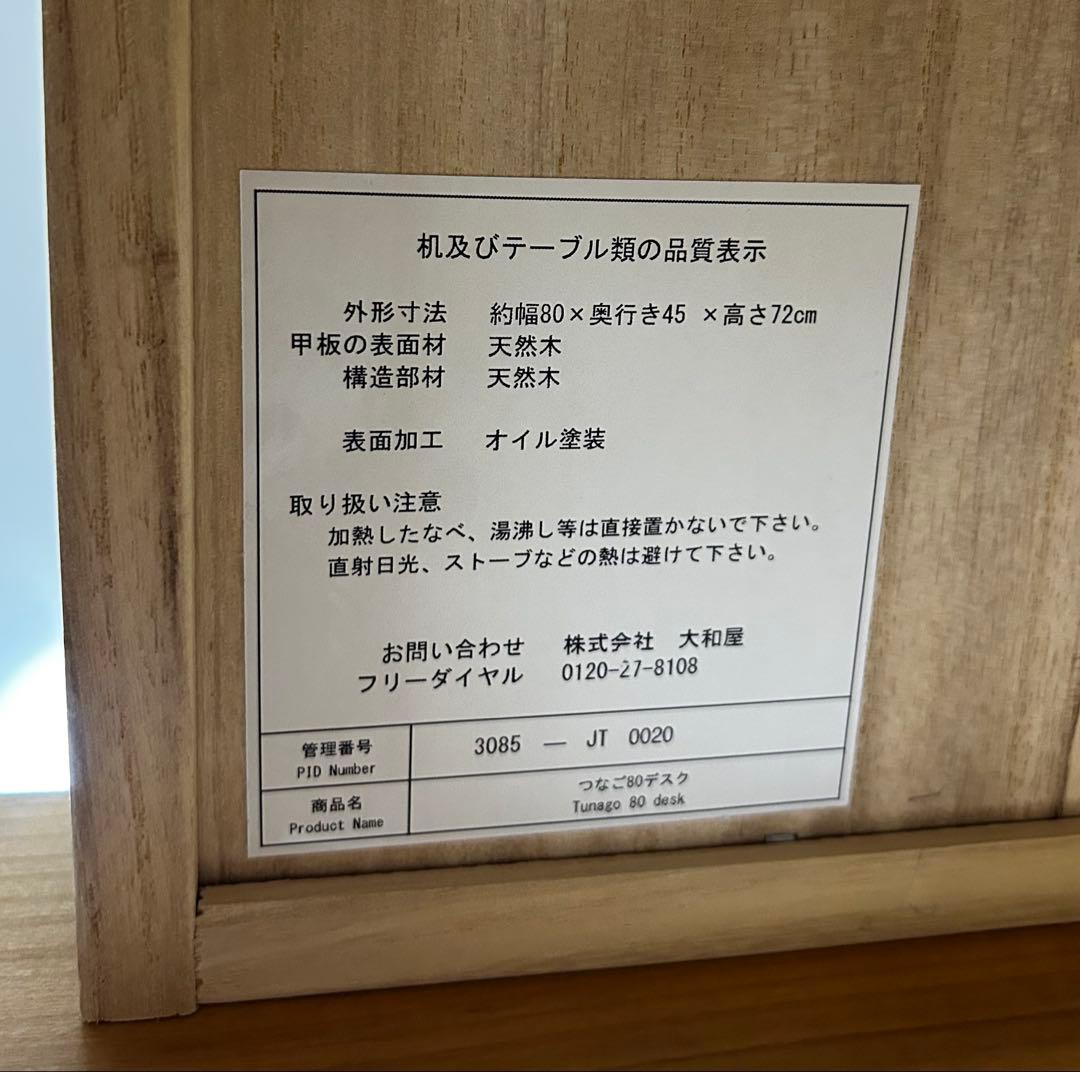 机及びテーブル類の品質表示
外形寸法 約幅80×奥行き45 ×高さ72cm
甲板の表面材 天然木
構造部材 天然木
表面加工 オイル塗装
取り扱い注意
加熱したなべ、湯沸し等は直接置かないで下さい。
直射日光、ストーブなどの熱は避けて下さい。
お問い合わせ 株式会社 大和屋
フリーダイヤル 0120-27-8108
管理番号 3085 — JT 0020
PID Number
商品名 つなご80デスク
Product Name Tunago 80 desk